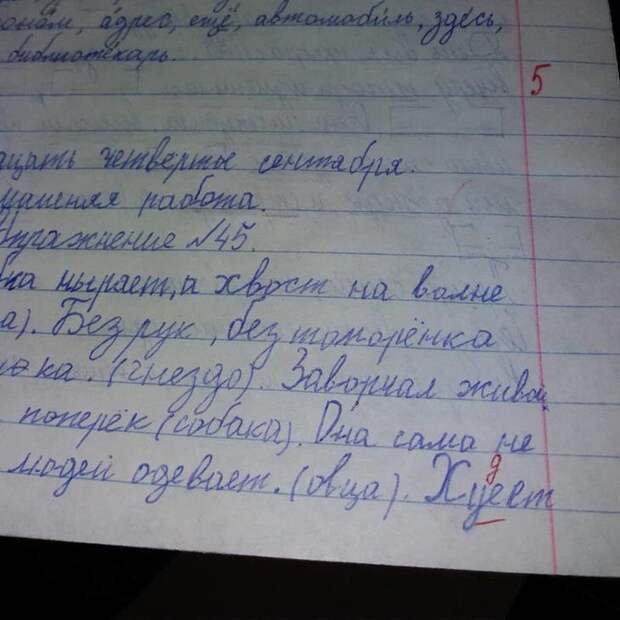 адрес, ещё, автомобиль, здесь,
библиотекарь.
5
четвертые сентября.
работа.
Упражнение №45.
ныряет, а хвост на волне
а). Без рук, без топорёнка
ка. (гнездо). Заворчал живой
поперёк (собака). Она сама не
людей одевает. (овца). Хуеет
д